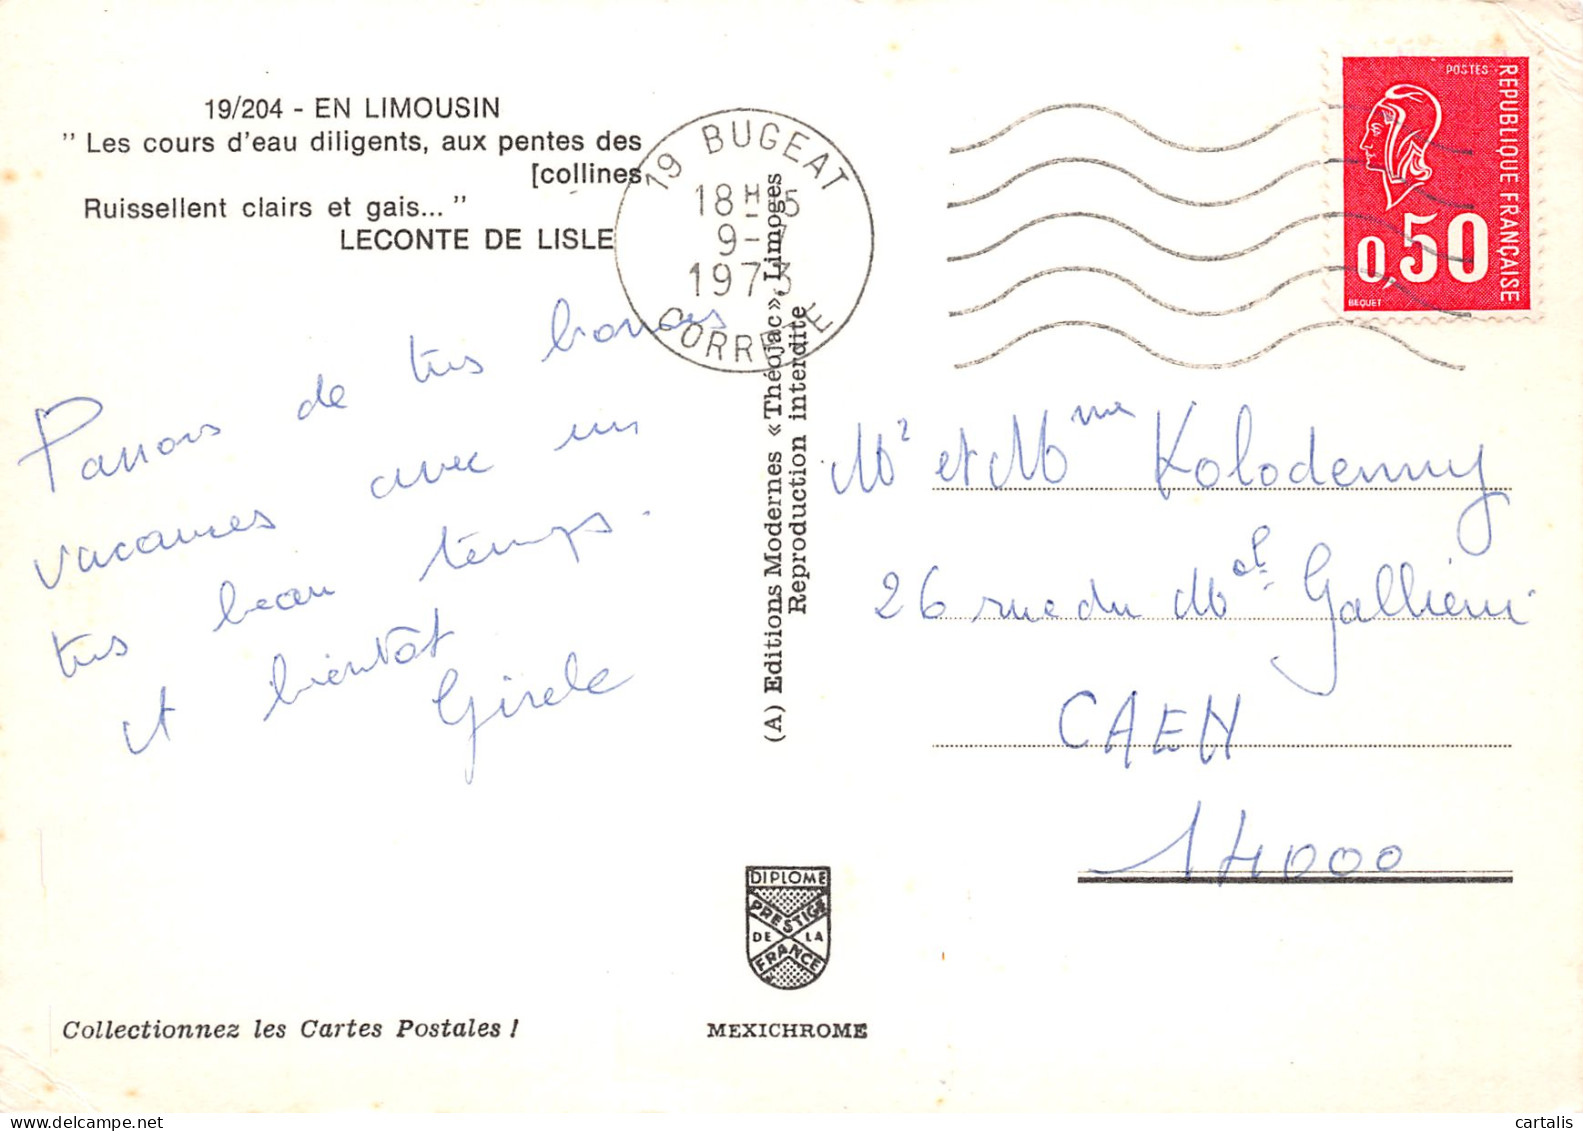 19/204 - EN LIMOUSIN
" Les cours d'eau diligents, aux pentes des
[collines
Ruissellent clairs et gais... "
LECONTE DE LISLE
19 BUGEAT
18 H 15
9-7
1973
CORREZE
POSTES
REPUBLIQUE FRANÇAISE
0,50
BEQUET
Passons de très bonnes
vacances avec un
très beau temps.
et bientôt
Gisele
(A) Editions Modernes «Théojac», Limoges
Reproduction interdite
Mr et Mme Kolodenny
26 rue du Mal Gallieni
CAEN
14000
DIPLOME
PRESTIGE
DE LA
FRANCE
Collectionnez les Cartes Postales !
MEXICHROME
cartalis